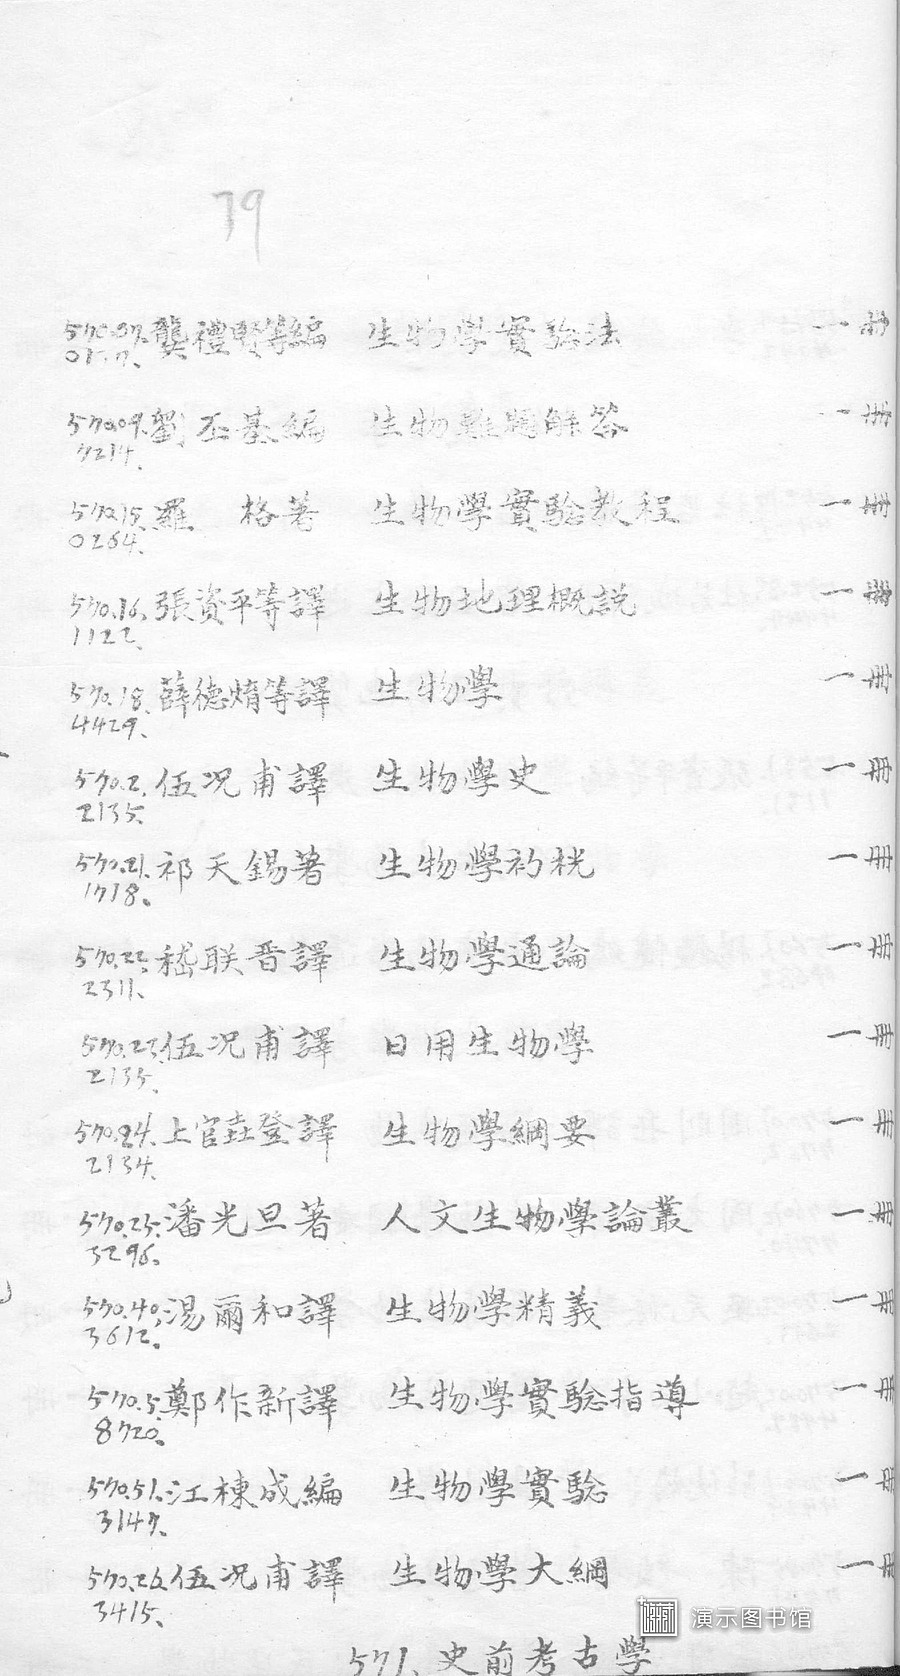 79
570.07. 龔禮賢等編 生物學實驗法 一冊
570.09. 劉丕基編 生物難題解答 一冊
7214.
570.15. 羅 格著 生物學實驗教程 一冊
0264.
570.16. 張資平等譯 生物地理概說 一冊
1122.
570.18. 薛德焴等譯 生物學 一冊
4429.
570.2. 伍况甫譯 生物學史 一冊
2135.
570.21. 祁天錫著 生物學初桄 一冊
1718.
570.22. 嵇联晋譯 生物學通論 一冊
2311.
570.23. 伍况甫譯 日用生物學 一冊
2135.
570.24. 上官垚登譯 生物學綱要 一冊
2134.
570.25. 潘光旦著 人文生物學論叢 一冊
3296.
570.40. 湯爾和譯 生物學精義 一冊
3612.
570.5. 鄭作新譯 生物學實驗指導 一冊
8720.
570.51. 江棟成編 生物學實驗 一冊
3147.
570.26. 伍况甫譯 生物學大綱 一冊
3415.
571. 史前考古學
演示图书馆